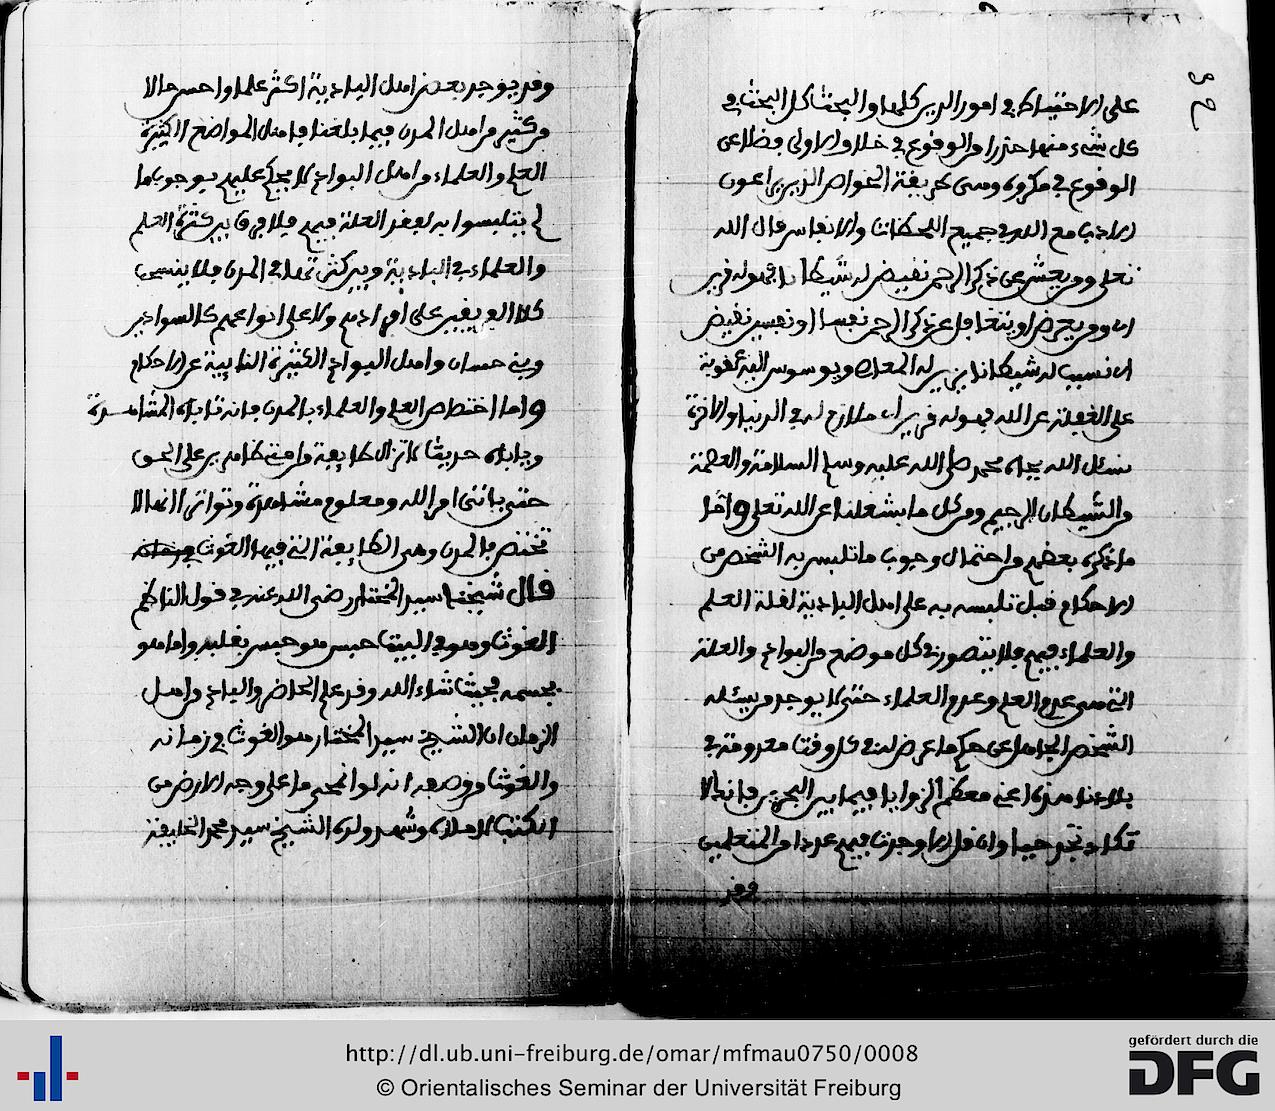 على الاحتياط في امور الدين كلها والبحث كل البحث في
كل شيء منها حذرا من الوقوع في خلاف الاولى فضلا عن
الوقوع في مكروه وهي طريقة الخواص الذين يراعون
الادب مع الله في جميع اللحظات والانفاس قال الله
تعلى ومن يعش عن ذكر الرحمن نقيض له شيطانا فهو له قرين
اي ومن يعرض او يتغافل عن ذكر الرحمن نقيض
اي نسبب له شيطانا يزين له المعاصي ويوسوس اليه عقوبة
على الغفلة عن الله فهو له قرين اي ملازم له في الدنيا والاخرة
نسئل الله بجاه محمد صلى الله عليه وسلم السلامة والعصمة
من الشيطان الرجيم ومن كل ما يشغلنا عن الله تعلى واما
ما ذكره بعضهم من احتمال وجوب ما تلبس به الشخص من
الاحكام قبل تلبسه به على اهل البادية لقلة العلم
والعلماء فيهم فلا يتصور في كل موضع من البوادي والعلة
التي هي عدم العلم وعدم العلماء حتى لا يوجد من يسئله
الشخص الجاهل عن حكم ما عرض له في كل وقت معدومة في
بلادنا هذه اعني معظم الزوايا فيما بين البحرين فانه لا
تكاد تجد حيا وان قل الا وجدت فيهم عددا من المتعلمين
وقد
وقد يوجد بعض اهل البادية اكثر علما واحسن حالا
من كثير من اهل المدن فيما بلغنا فاهل المواضع الكثيرة
العلم والعلماء من اهل البوادي لا يحكم عليهم بوجوب ما
لم يتلبسوا به لفقد العلة فيهم فلا فرق بين كثرة العلم
والعلماء في البادية وبين كثرتهما في المدن فلا ينبغي
كلام الفقيه على افرادهم ولا على انواعهم كالسوادين
وبني حسان واهل البوادي الكثيرة النايية عن الاحكام
واما اختصاص العلم والعلماء بالمدن فانه تاباه المشاهدة
وياباه حديث لا تزال طايفة من امتي ظاهرين على الحق
حتى ياتي امر الله ومعلوم مشاهدة وتواترا انها لا
تختص بالمدن وهي الطايفة التي فيها الغوث
قال شيخنا سيد المختار رضي الله عنه في قول الناظم
الغوث وهو في البيت حبس هو حبس بقلبه واما هو
بجسمه فحيث شاء الله وقد علم الحاضر والبادي من اهل
الزمان ان الشيخ سيد المختار هو الغوث في زمانه
والغوث من وصفه انه لو انمحى ما على وجه الارض من
الكتب لاملاه وشهد ولده الشيخ سيد محمد الخليفة
http://dl.ub.uni-freiburg.de/omar/mfmau0750/0008
© Orientalisches Seminar der Universität Freiburg
gefördert durch die
DFG